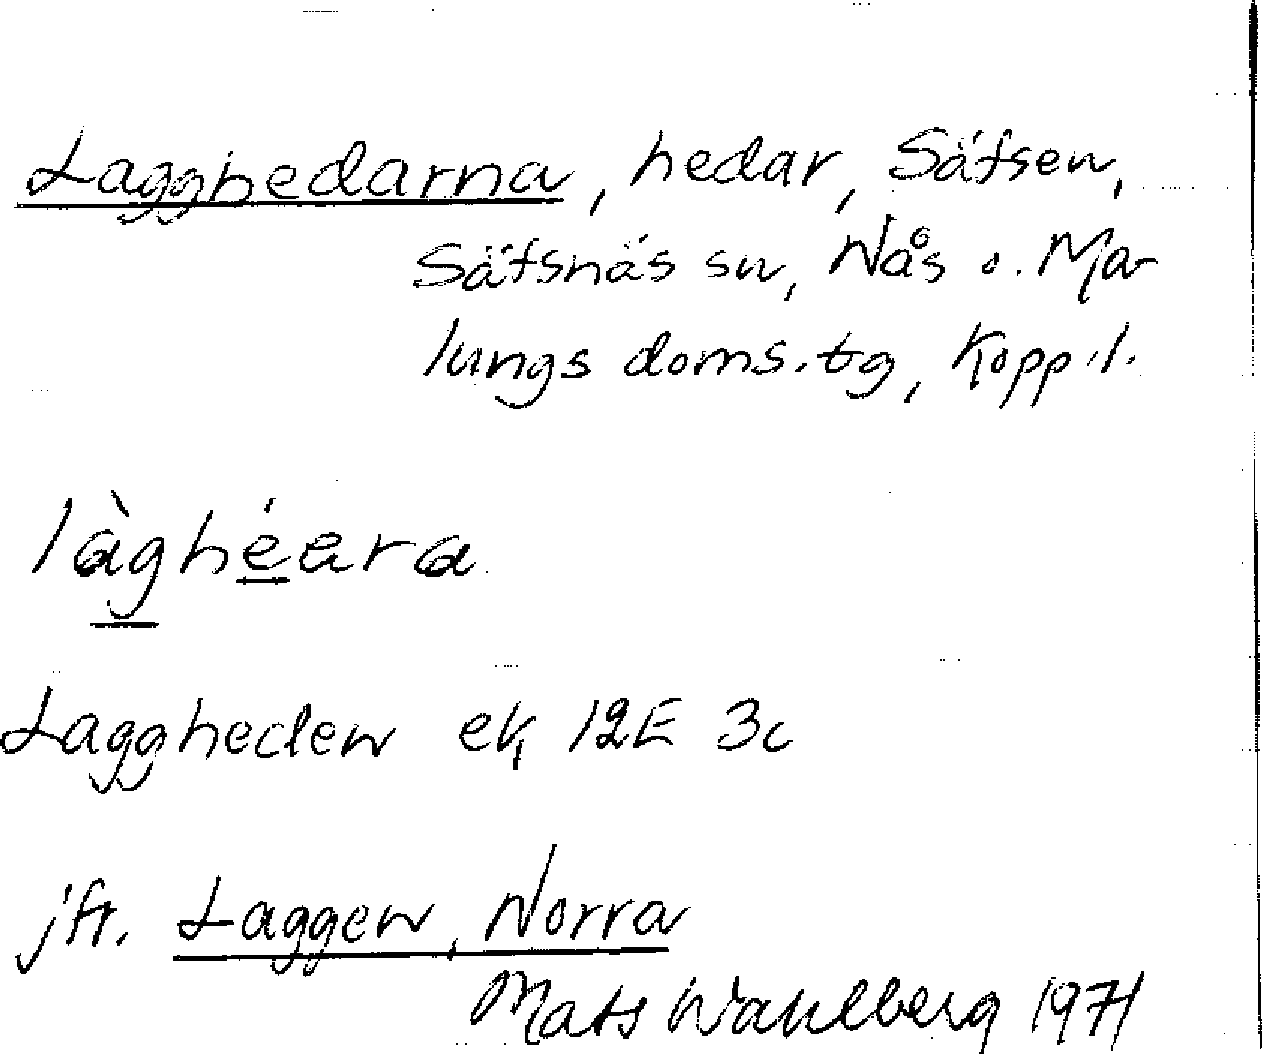 Lagghedarna, hedar, Säfsen,
Säfsnäs sn, Nås o. Ma-
lungs doms.tg, Kopp.l.
làghéara
Laggheden ek, 12E 3c
jfr. Laggen, Norra
Mats Wahlberg 1971